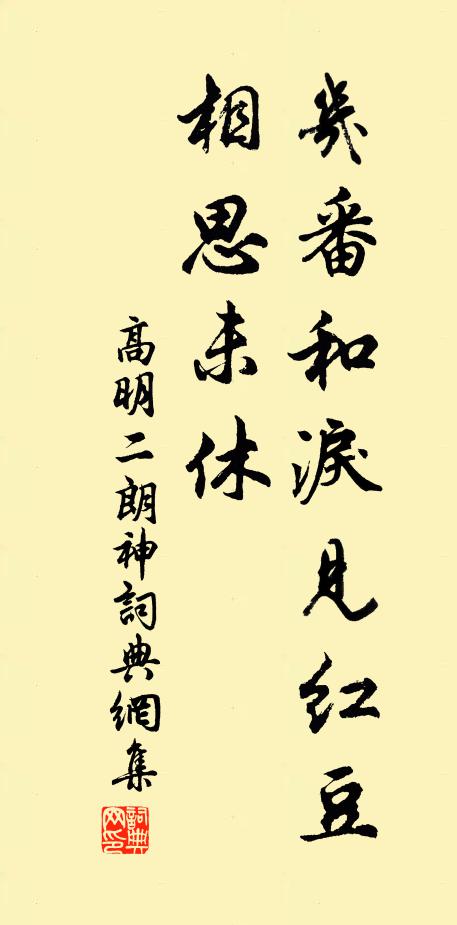 幾番和淚見紅豆
相思未休
高明二朗神詞典網集
詞典網印